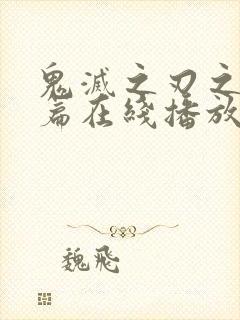 鬼滅之刃之
篇在綫播放
魏飛